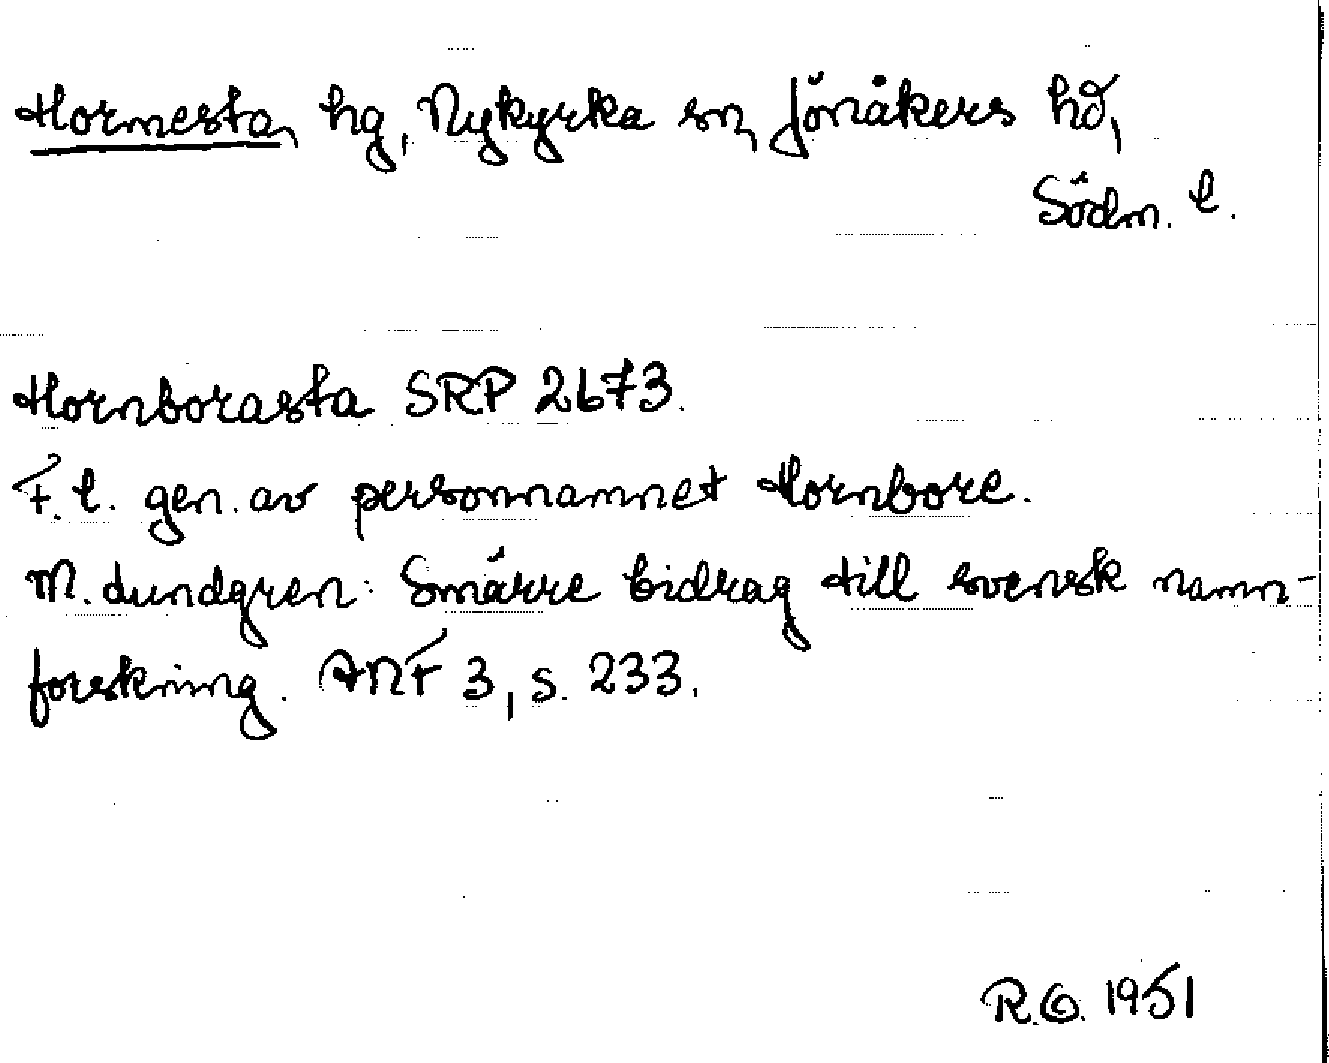 Hormesta, hg, Nykyrka sn, Jönåkers hd,
Södm. l.
Hornborasta SRP 2673.
F. l. gen. av personnamnet Hornbore.
M. Lundgren: Smärre bidrag till svensk namn-
forskning. ANF 3, s. 233.
R.G. 1951